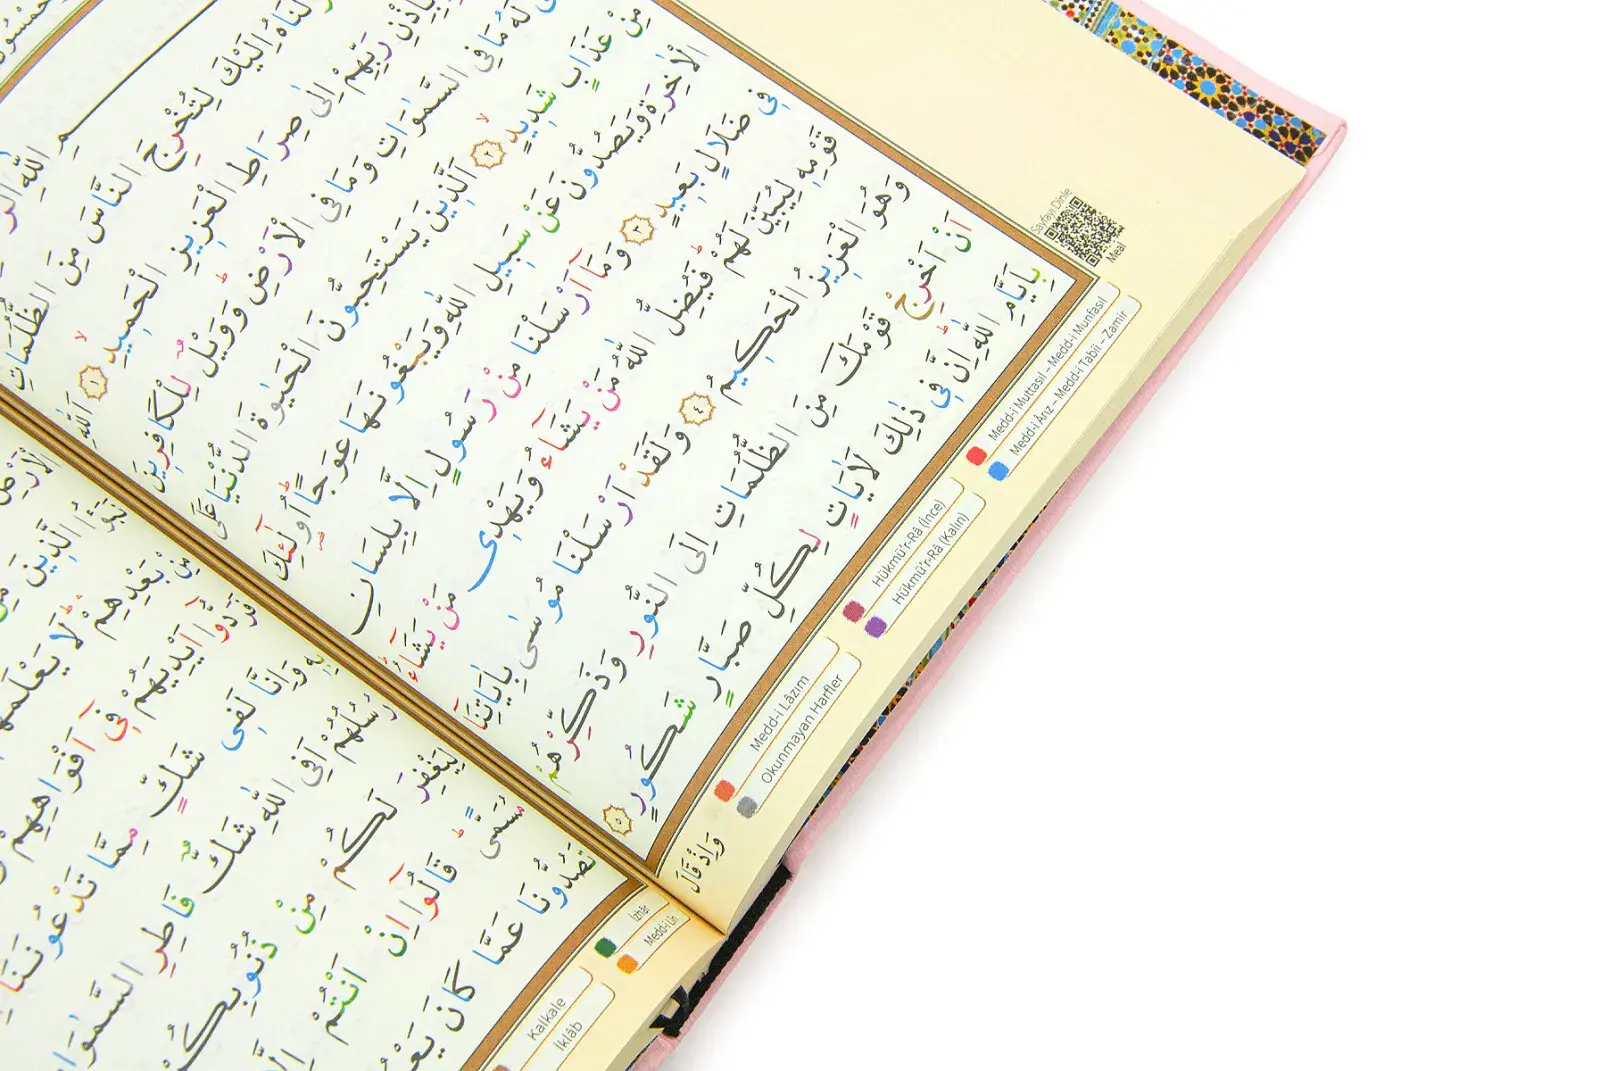 اِلَيْكَ لِتُخْرِجَ النَّاسَ مِنَ الظُّلُمَاتِ
رَبِّهِمْ اِلٰى صِرَاطِ الْعَزِيزِ الْحَمِيدِ ١ اَللّٰهِ
لَهُ مَا فِي السَّمٰوَاتِ وَمَا فِي الْاَرْضِ وَوَيْلٌ لِلْكَافِرِينَ
مِنْ عَذَابٍ شَدِيدٍ ٢ اَلَّذِينَ يَسْتَحِبُّونَ الْحَيٰوةَ الدُّنْيَا عَلَى
الْاٰخِرَةِ وَيَصُدُّونَ عَنْ سَبِيلِ اللّٰهِ وَيَبْغُونَهَا عِوَجًا اُو۬لٰٓئِكَ
فِي ضَلَالٍ بَعِيدٍ ٣ وَمَٓا اَرْسَلْنَا مِنْ رَسُولٍ اِلَّا بِلِسَانِ
قَوْمِهِ لِيُبَيِّنَ لَهُمْ فَيُضِلُّ اللّٰهُ مَنْ يَشَٓاءُ وَيَهْدِي مَنْ يَشَٓاءُ
وَهُوَ الْعَزِيزُ الْحَكِيمُ ٤ وَلَقَدْ اَرْسَلْنَا مُوسٰى بِاٰيَاتِنَٓا
اَنْ اَخْرِجْ قَوْمَكَ مِنَ الظُّلُمَاتِ اِلَى النُّورِ وَذَكِّرْهُمْ
بِاَيَّامِ اللّٰهِ اِنَّ فِي ذٰلِكَ لَاٰيَاتٍ لِكُلِّ صَبَّارٍ شَكُورٍ ٥
وَاِذْ قَالَ
Sayfayı Dinle
Meal
Medd-i Muttasıl - Medd-i Munfasıl
Medd-i Ârız - Medd-i Tabii - Zamir
Hükmü'r-Râ (İnce)
Hükmü'r-Râ (Kalın)
Medd-i Lâzım
Okunmayan Harfler
الَّذِينَ مِنْ
مِنْ بَعْدِهِمْ لَا يَعْلَمُهُمْ
فَرَدُّٓوا اَيْدِيَهُمْ فِٓي اَفْوَاهِهِمْ
بِهِ وَاِنَّا لَفِي شَكٍّ مِمَّا تَدْعُونَنَٓا
رُسُلُهُمْ اَفِي اللّٰهِ شَكٌّ فَاطِرِ السَّمٰوَاتِ
لِيَغْفِرَ لَكُمْ مِنْ ذُنُوبِكُمْ
مُسَمًّى قَالُٓوا اِنْ اَنْتُمْ اِلَّا
تَصُدُّونَا عَمَّا كَانَ
İzhâr
Medd-i Lîn
Kalkale
İklâb